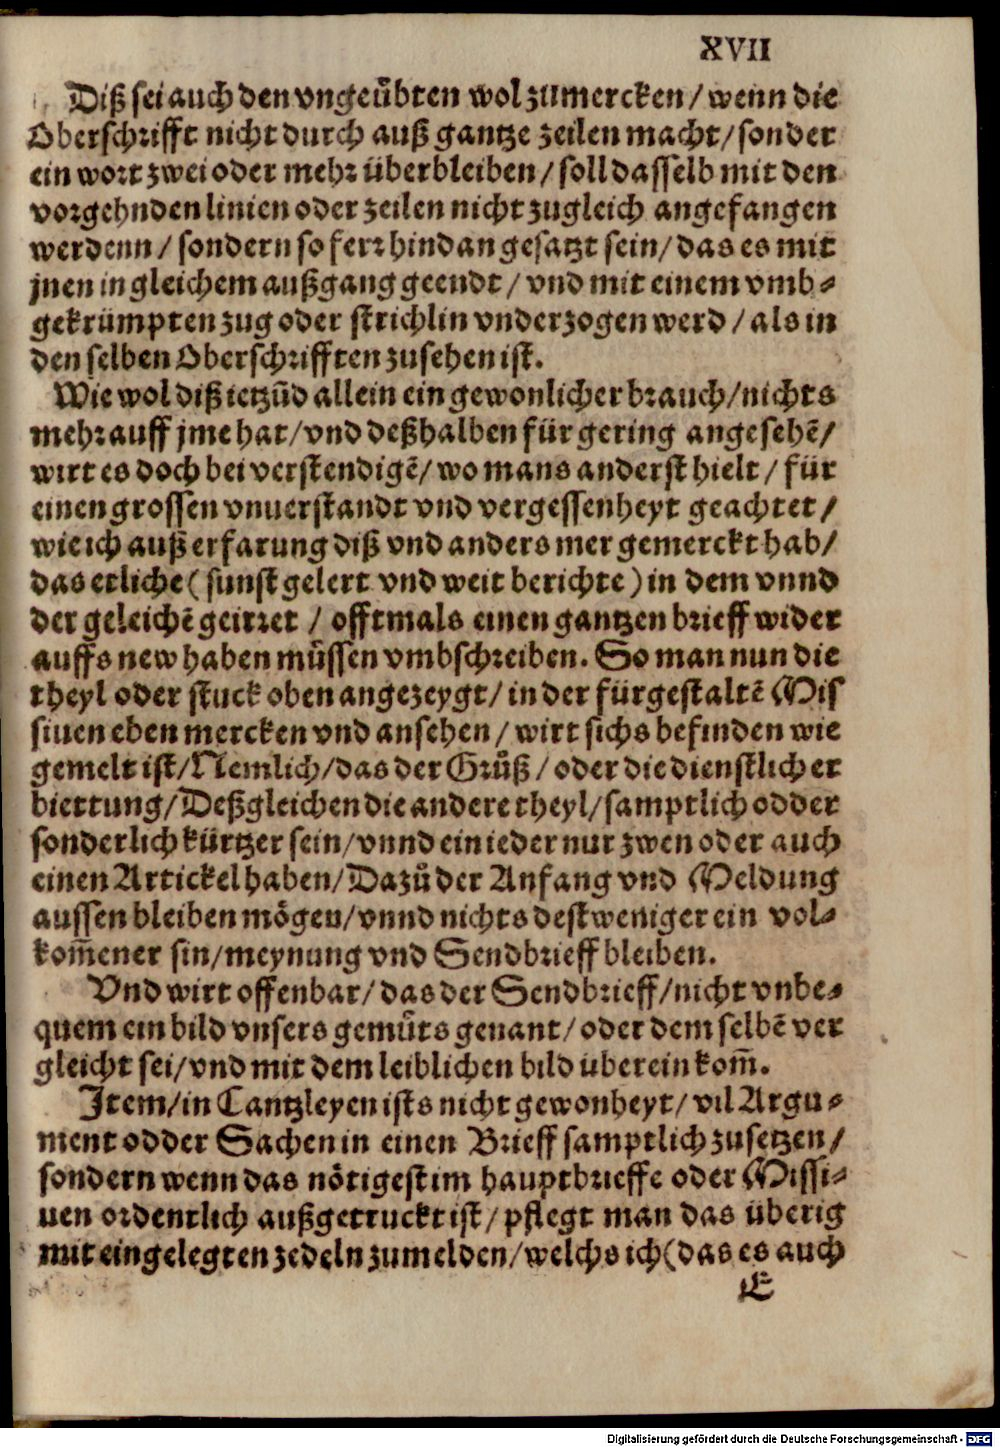 XVII
Diß sei auch den vngeübten wol zumercken/ wenn die
Oberschrifft nicht durch auß gantze zeilen macht/ sonder
ein wort zwei oder mehr überbleiben/ soll dasselb mit den
vorgehnden linien oder zeilen nicht zugleich angefangen
werdenn/ sondern so ferr hindan gesatzt sein/ das es mit
jnen in gleichem außgang geendt/ vnd mit einem vmb-
gekrümpten zug oder strichlin vnderzogen werd/ als in
den selben Oberschrifften zusehen ist.
Wie wol diß ietzũd allein ein gewonlicher brauch/ nichts
mehr auff jme hat/ vnd deßhalben für gering angesehẽ/
wirt es doch bei verstendigẽ/ wo mans anderst hielt/ für
einen grossen vnuerstandt vnd vergessenheyt geachtet/
wie ich auß erfarung diß vnd anders mer gemerckt hab/
das etliche (sunst gelert vnd weit berichte) in dem vnnd
der geleichẽ geirret/ offtmals einen gantzen brieff wider
auffs new haben müssen vmbschreiben. So man nun die
theyl oder stuck oben angezeygt/ in der fürgestaltẽ Mis
siuen eben mercken vnd ansehen/ wirt sichs befinden wie
gemelt ist/ Nemlich/ das der Grůß/ oder die dienstlich er
biettung/ Deßgleichen die andere theyl/ samptlich odder
sonderlich kürtzer sein/ vnnd ein ieder nur zwen oder auch
einen Artickel haben/ Dazů der Anfang vnd Meldung
aussen bleiben mögen/ vnnd nichts destweniger ein vol-
kom̃ener sin/ meynung vnd Sendbrieff bleiben.
Vnd wirt offenbar/ das der Sendbrieff/ nicht vnbe-
quem ein bild vnsers gemüts genant/ oder dem selbẽ ver
gleicht sei/ vnd mit dem leiblichen bild überein kom̃.
Item/ in Cantzleyen ists nicht gewonheyt/ vil Argu-
ment odder Sachen in einen Brieff samptlich zusetzen/
sondern wenn das nötigest im hauptbrieffe oder Missi-
uen ordentlich außgetruckt ist/ pflegt man das überig
mit eingelegten zedeln zumelden/ welchs ich (das es auch
E
Digitalisierung gefördert durch die Deutsche Forschungsgemeinschaft - DFG